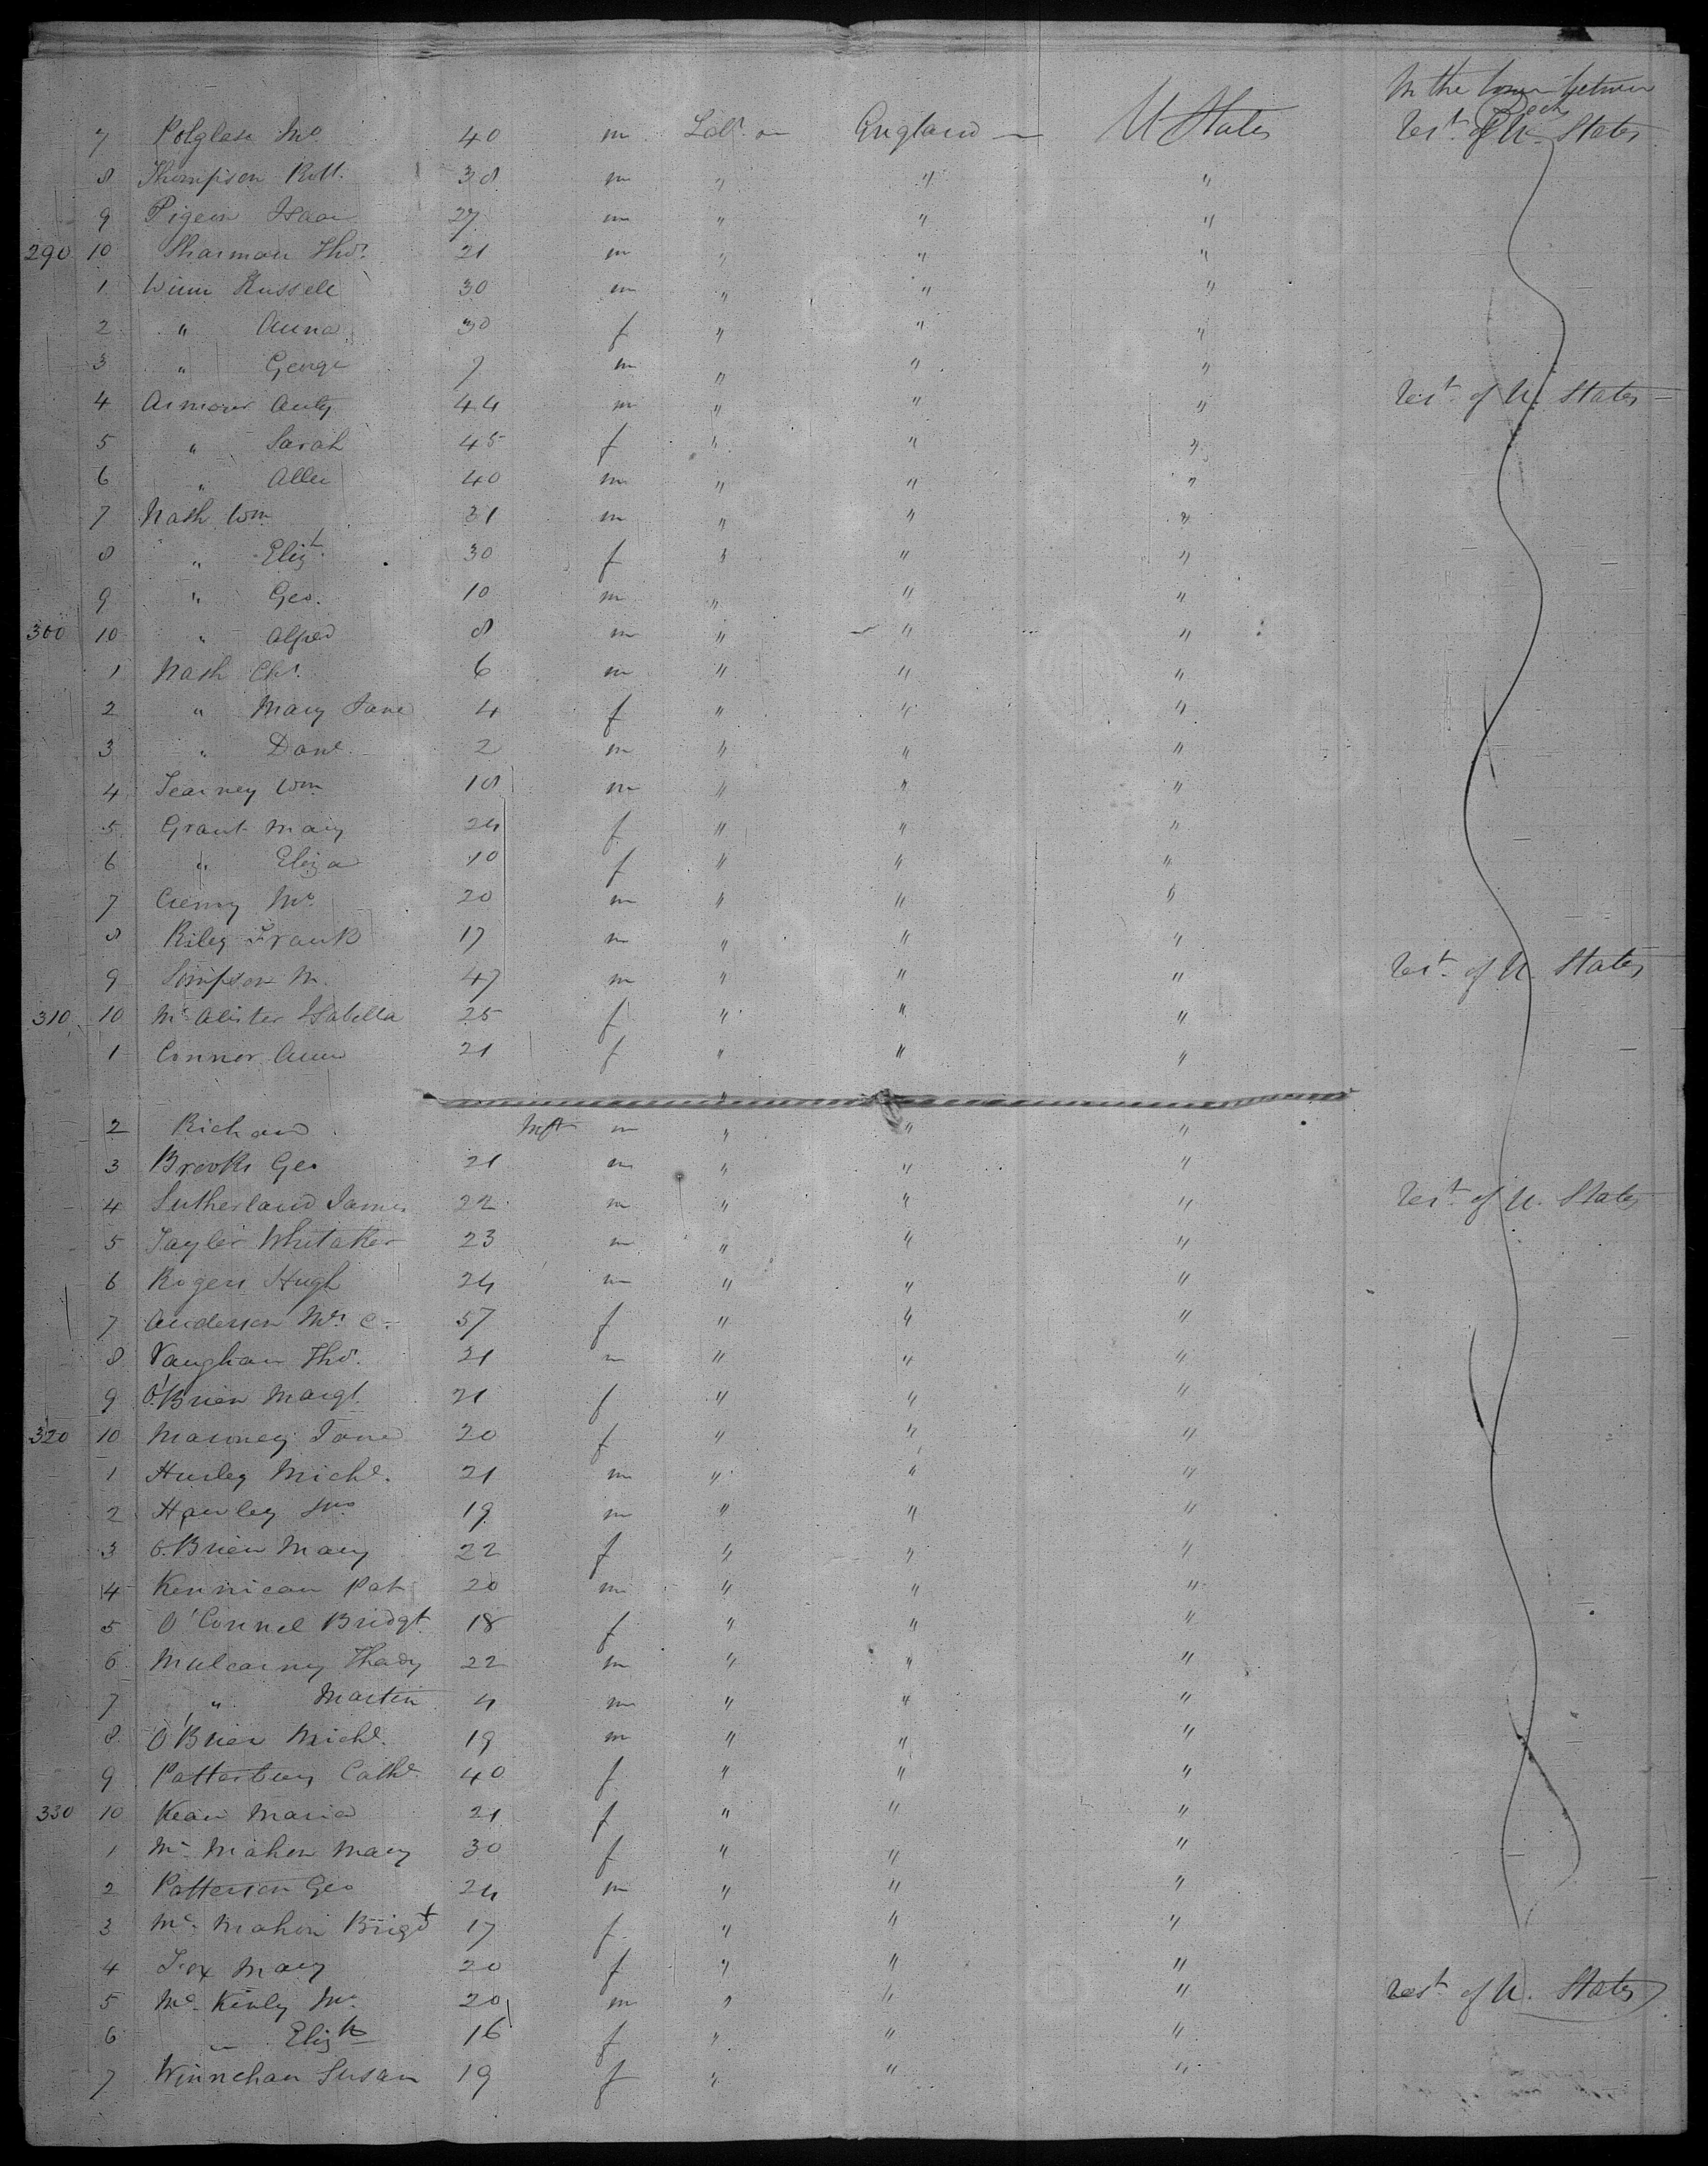 In the lower between Decks
7 Polglase Jno 40 m Labr England U States Rest. of U. States
8 Thompson Robt. 38 m " " "
9 Pigeon Isaac 27 m " " "
290 10 Sharman Thos. 21 m " " "
1 Winn Russell 30 m " " "
2 " Anna 30 f " " "
3 " George 7 m " " "
4 Armour Anty 44 m " " " Rest. of U. States
5 " Sarah 45 f " " "
6 " Allen 40 m " " "
7 Nash Wm 31 m " " "
8 " Elizt. 30 f " " "
9 " Geo. 10 m " " "
300 10 " Alfred 8 m " " "
1 Nash Chs. 6 m " " "
2 " Mary Jane 4 f " " "
3 " Danl. 2 m " " "
4 Tearney Wm 18 m " " "
5 Grant Mary 24 f " " "
6 " Eliza 10 f " " "
7 Jno. 20 m " " "
8 Riley Frank 17 m " " "
9 Simpson M. 47 m " " " Rest. of U. States
310 10 Mc Alister Isabella 25 f " " "
1 Connor Ann 21 f " " "
2 Richard Inft m " " "
3 Brooks Geo 21 m " " "
4 Sutherland James 22 m " " " Rest. of U. States
5 Tayler Whitaker 23 m " " "
6 Rogers Hugh 24 m " " "
7 Anderson Mrs. C. 57 f " " "
8 Vaughan Thos. 21 m " " "
9 O'Brien Margt. 21 f " " "
320 10 Mawney Jane 20 f " " "
1 Hurley Michl. 21 m " " "
2 Hawley Jno 19 m " " "
3 O.Brien Mary 22 f " " "
4 Kennican Pat 20 m " " "
5 O'Connel Bridgt. 18 f " " "
6 Mulcarny Thady 22 m " " "
7 " Martin 4 m " " "
8 O'Brien Michl. 19 m " " "
9 Cathe. 40 f " " "
330 10 Kean Maria 21 f " " "
1 Mc. Mahon Mary 30 f " " "
2 Patterson Geo 24 m " " "
3 Mc. Mahon Brigdt 17 f " " "
4 Fox Mary 20 f " " "
5 Mc. Kinly Jno. 20 m " " " Rest. of U. States
6 " Elizth 16 f " " "
7 Winnehan Susan 19 f " " "